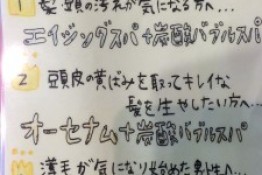 1 髪・頭の汚れが気になる方へ…
エイジングスパ+炭酸バブルスパ
2 頭皮の黄ばみを取ってキレイな
髪を生やしたい方へ…
オーセナム+炭酸バブルスパ
薄毛が気になり始めた男性へ…